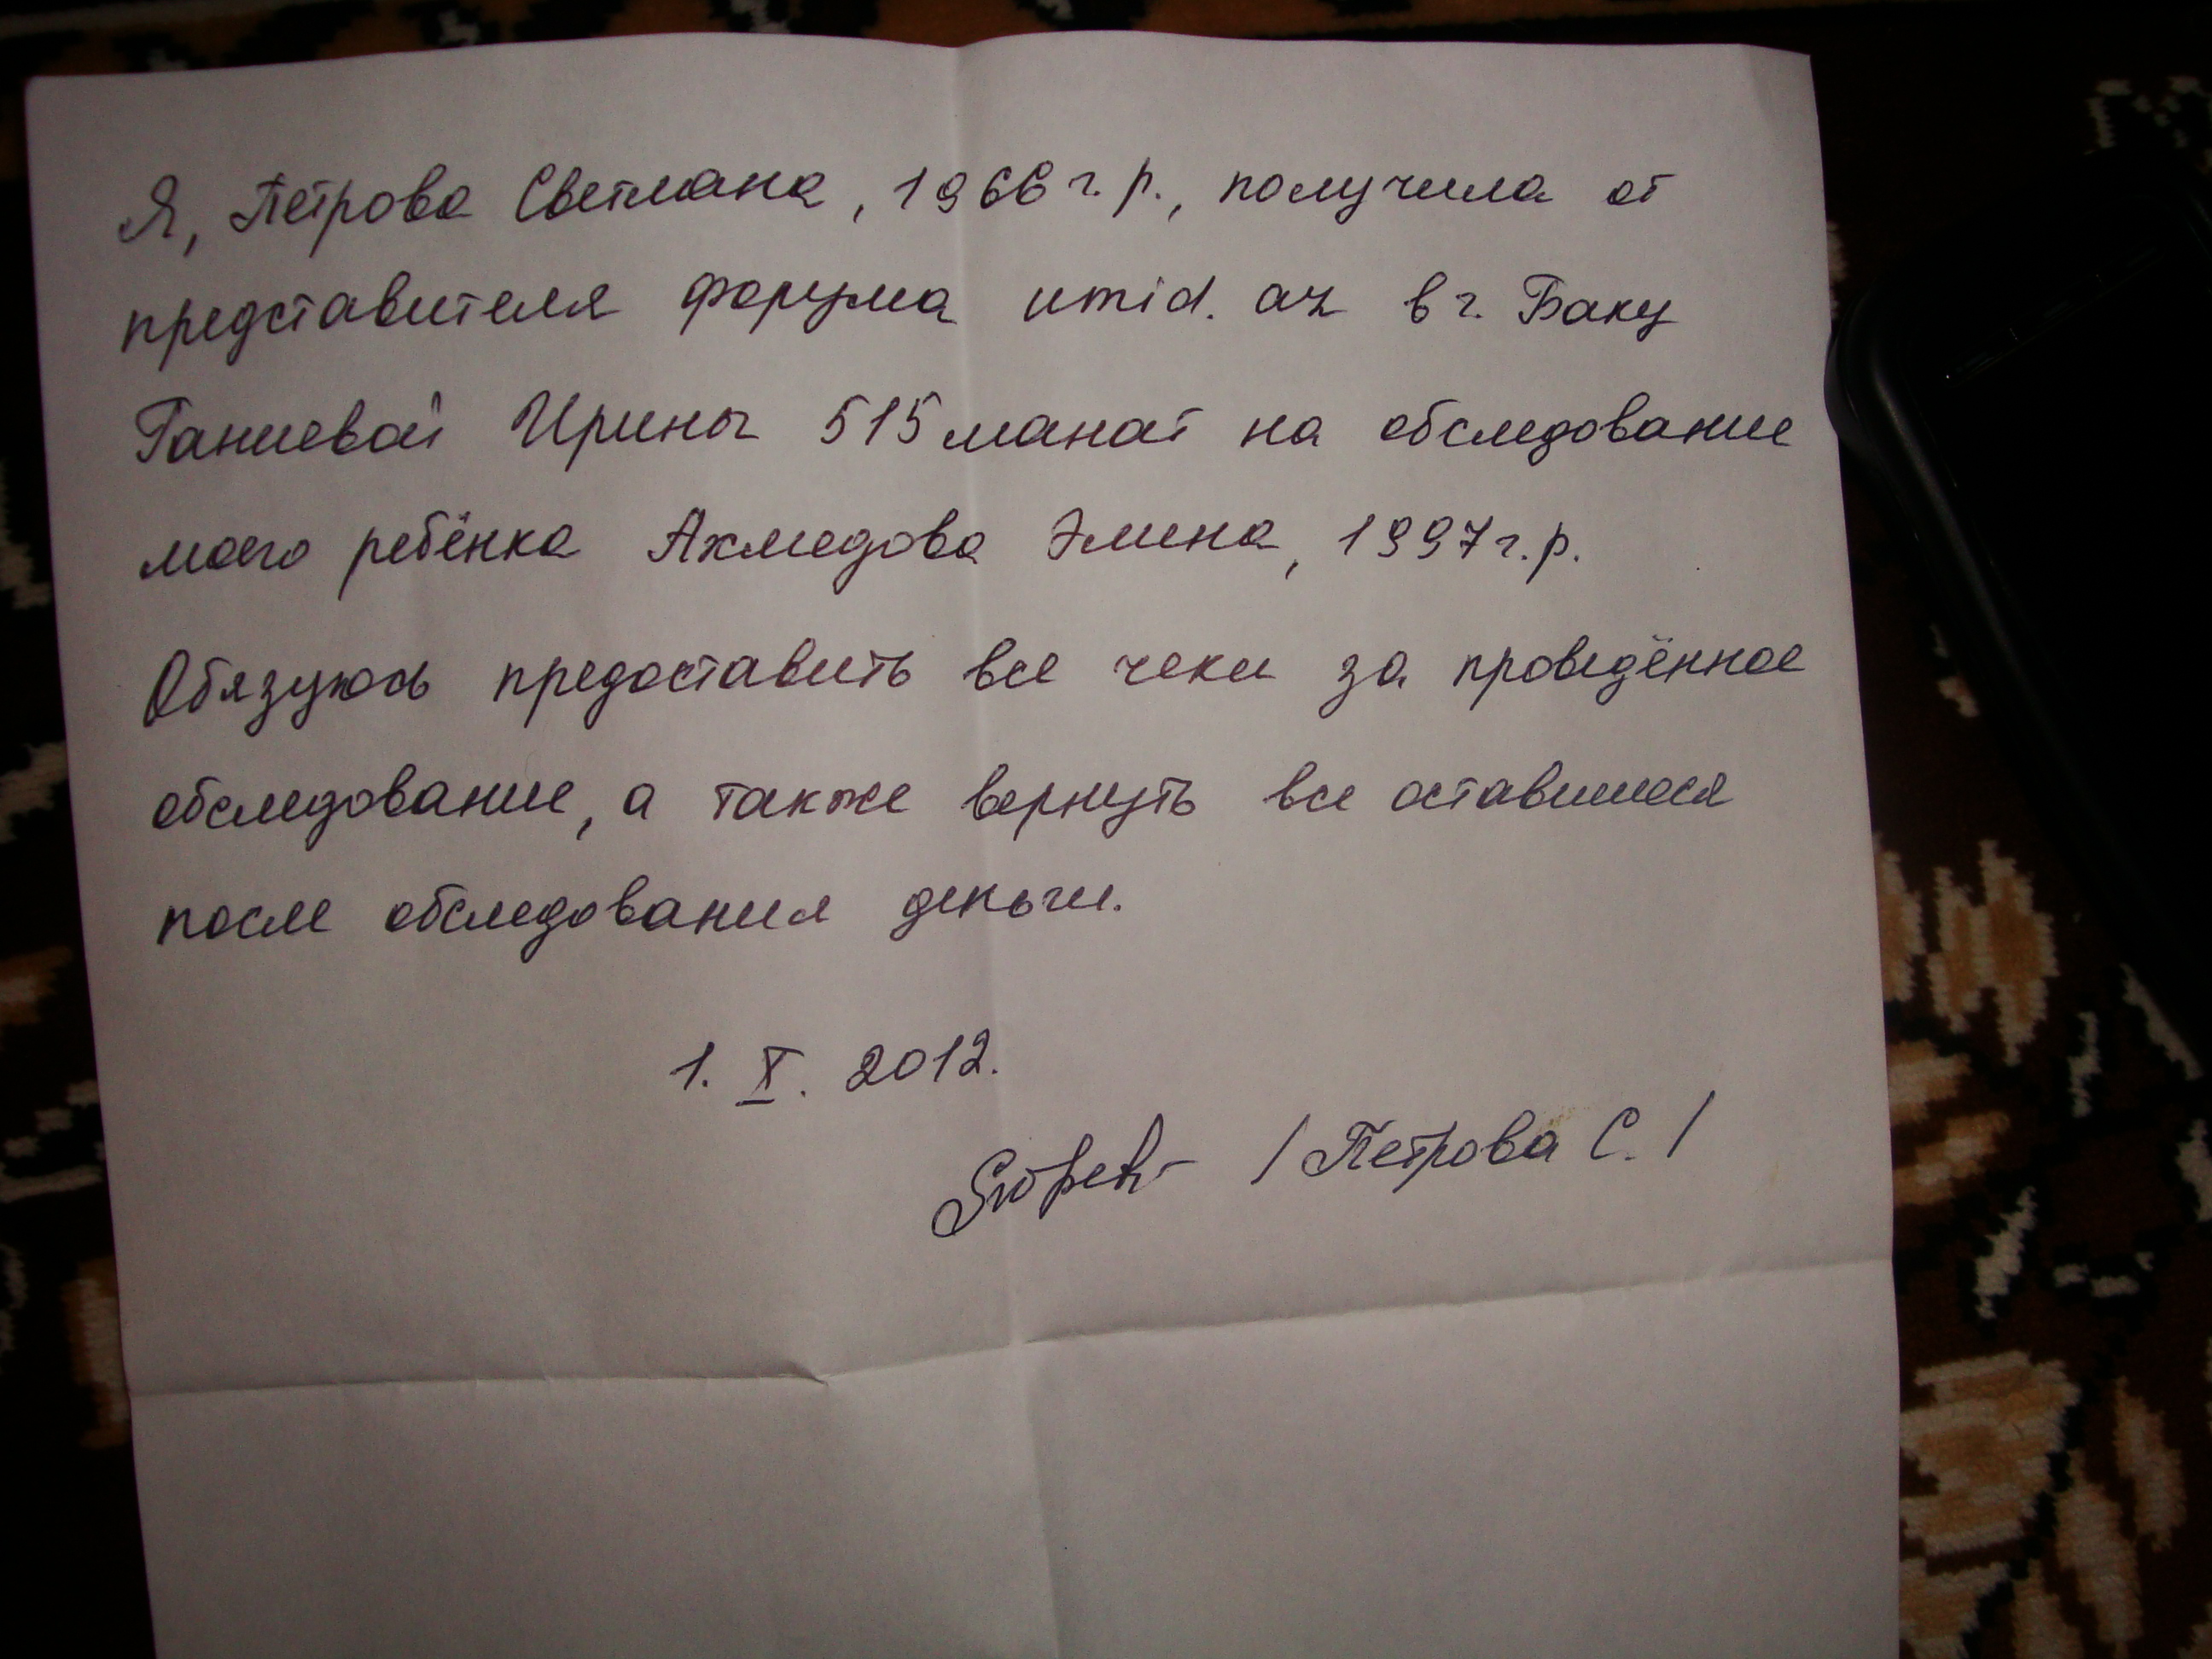 Я, Петрова Светлана, 1966 г.р., получила от
представителя форума umid.az в г. Баку
Ганиевой Ирины 515 манат на обследование
моего ребёнка Ахмедова Эмина, 1997 г.р.
Обязуюсь предоставить все чеки за проведённое
обследование, а также вернуть все оставшиеся
после обследования деньги.
1. X. 2012.
/ Петрова С. /